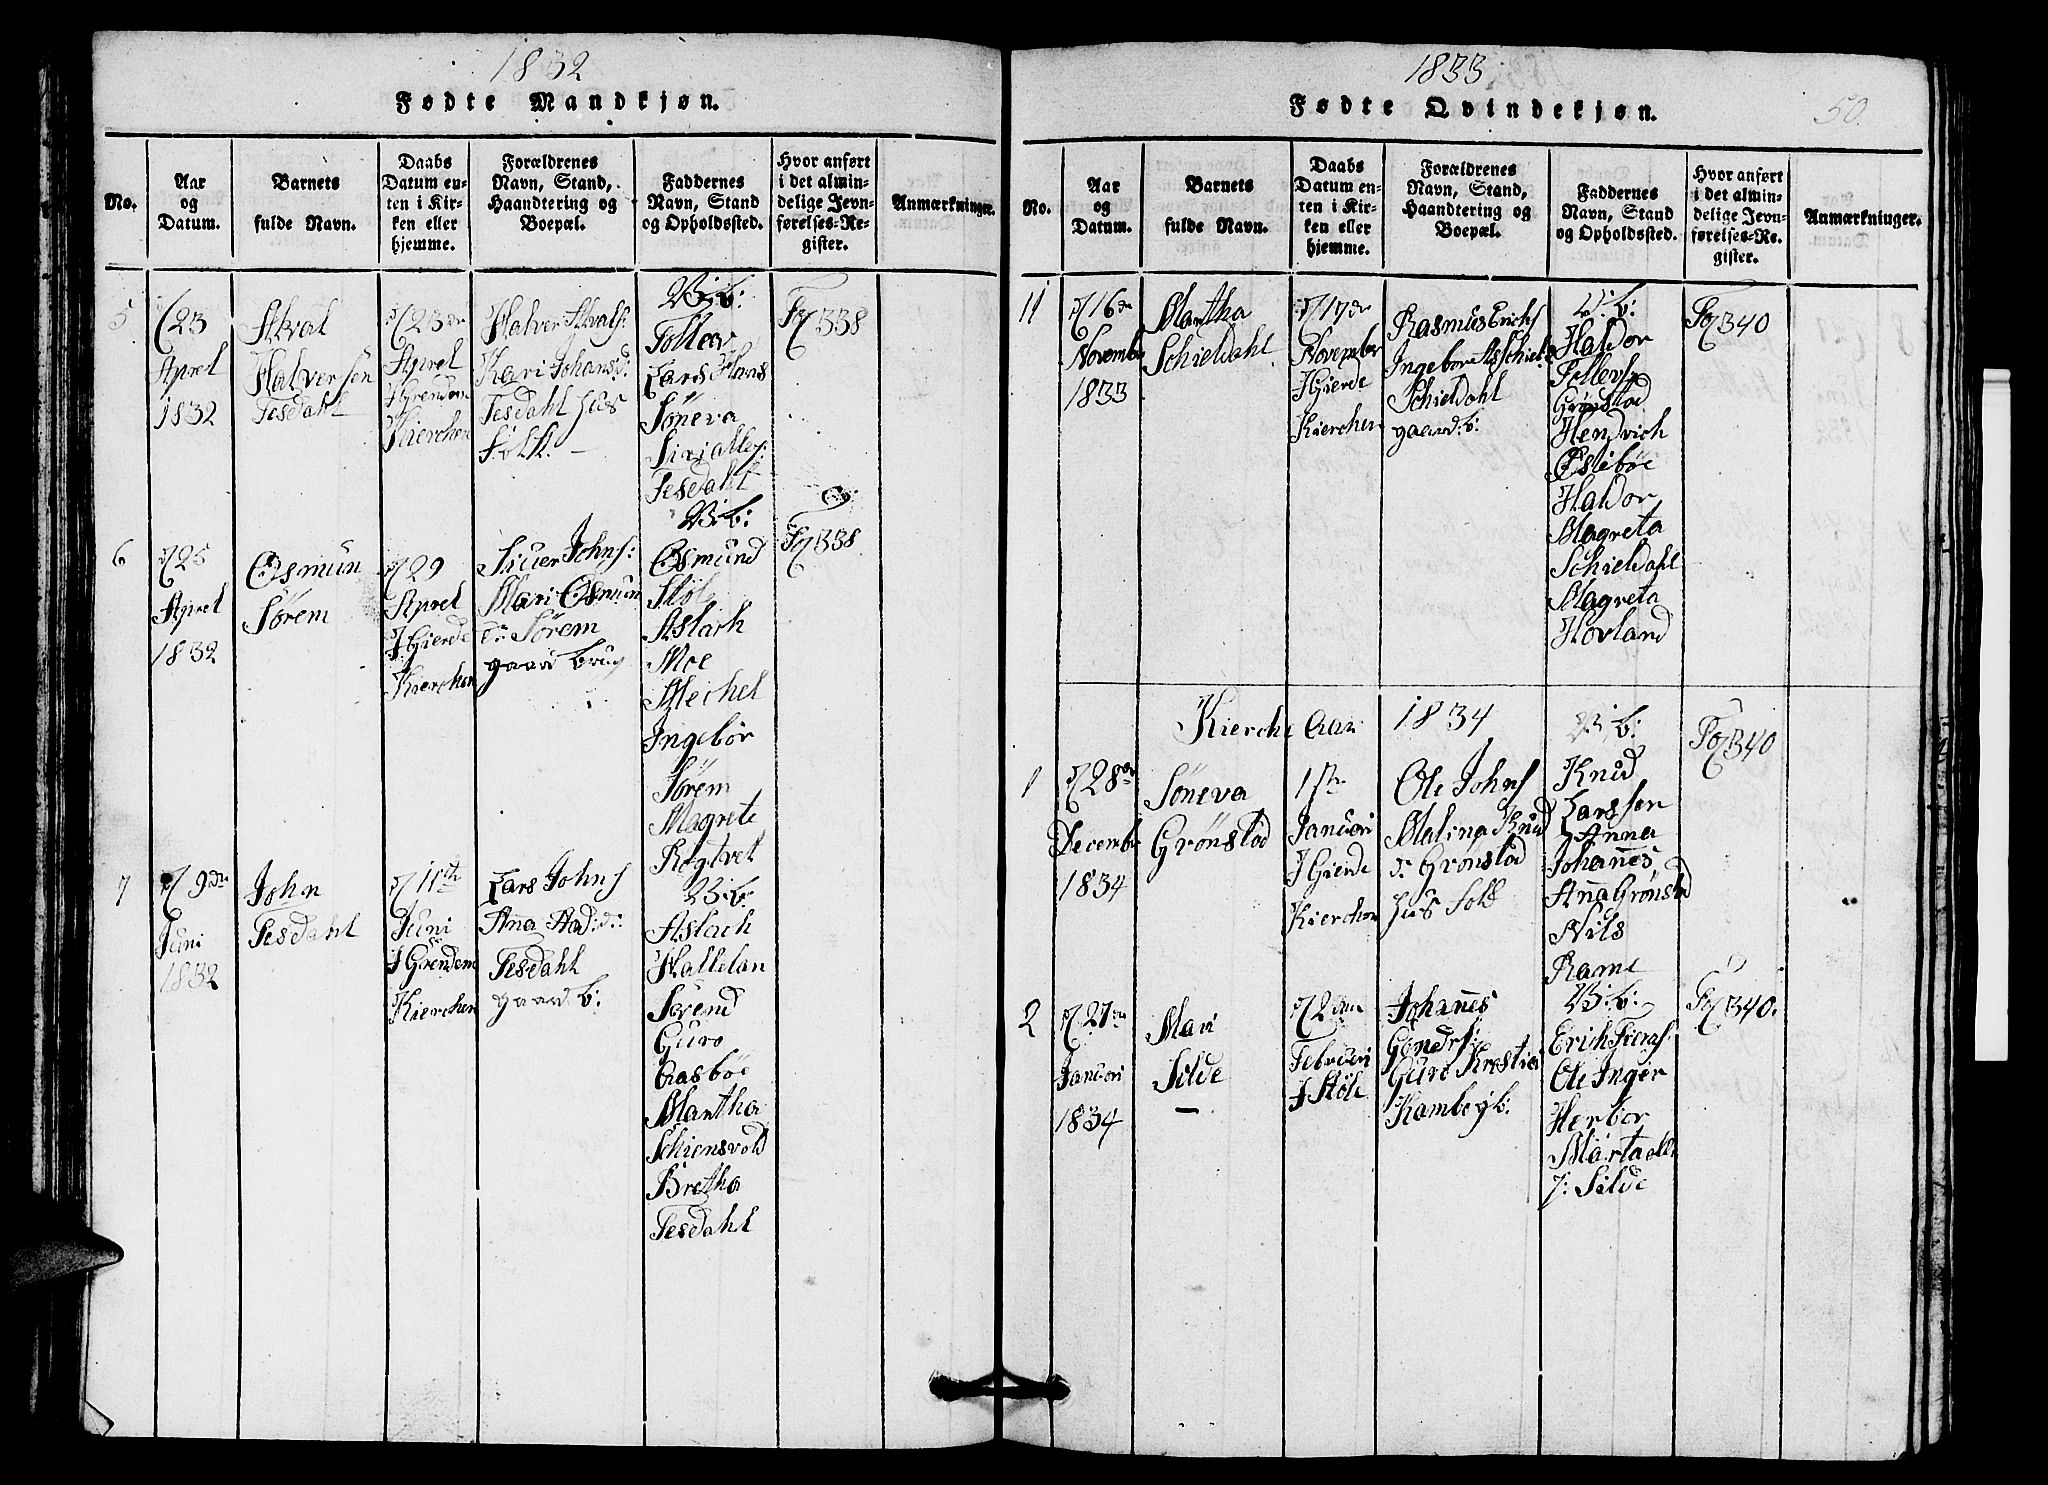 1832
Fødte Mandkjøn.
No.
Aar
og
Datum.
Barnets
fulde Navn.
Daabs
Datum en-
ten i Kir-
ken eller
hjemme.
Forældrenes
Navn, Stand,
Haandtering og
Boepæl.
Faddernes
Navn, Stand
og Opholdssted.
Hvor anført
i det almin-
delige Jevn-
førelses-Re-
gister.
Anmærkninger.
5
23
Aprel
1832
Halversen
Tesdahl
23
Aprel
Kierchen
Kari Johansd:
Tesdahl Hus
Folk.
V: b:
Tollev
Lars Hans
Søneva
Tesdahl
338
6
25
Aprel
1832
Osmun
Sørem
29
Aprel
I Gierde
Kierchen
Siver Johns:
Mari Osmun
d: Sørem
gaard brug
V: b:
Osmund
Støle
Aslach
Moe
Mechel
Ingebor
Sørem
Magrete
338
7
9
Juni
1832
John
Tesdahl
11th
Juni
I Grendem
Kierchen
Lars Johns
Ana Aad: d:
Tesdahl
gaard b:
V: b:
Aslach
Hallelan
Sørend
Guro
Aasbøe
Martha
Schiensvold
Bretha
Tesdahl
1833
Fødte Qvindekjøn.
50.
No.
Aar
og
Datum.
Barnets
fulde Navn.
Daabs
Datum en-
ten i Kir-
ken eller
hjemme.
Forældrenes
Navn, Stand,
Haandtering og
Boepæl.
Faddernes
Navn, Stand
og Opholdssted.
Hvor anført
i det almin-
delige Jevn-
førelses-Re-
gister.
Anmærkninger.
11
16
November
1833
Martha
Schieldahl
17
November
I Gierde
Kierchen
Rasmus Erichs
Schieldahl
gaard: b:
V: b:
Haldor
Tollevs
Grønstod
Hendrich
Østebøe
Haldor
Magreta
Schieldahl
Magreta
Hovland
340
Kierche Aar 1834
1
28
December
1834
Søneva
Grønstod
1th
Januari
I Gierde
Kierchen
Ole Johns
Malina Knud
d: Grønstod
Hus Fold
V: b:
Knud
Larssen
Anna
Johanes
Ana Grønstd
Nils
Rame
340
2
27
Januari
1834
Mari
Silde
2
Februari
I Støle
Johanes
Guro Krestia
V: b:
Ole Inger
Herbor
Marta Ole
s: Silde
340.